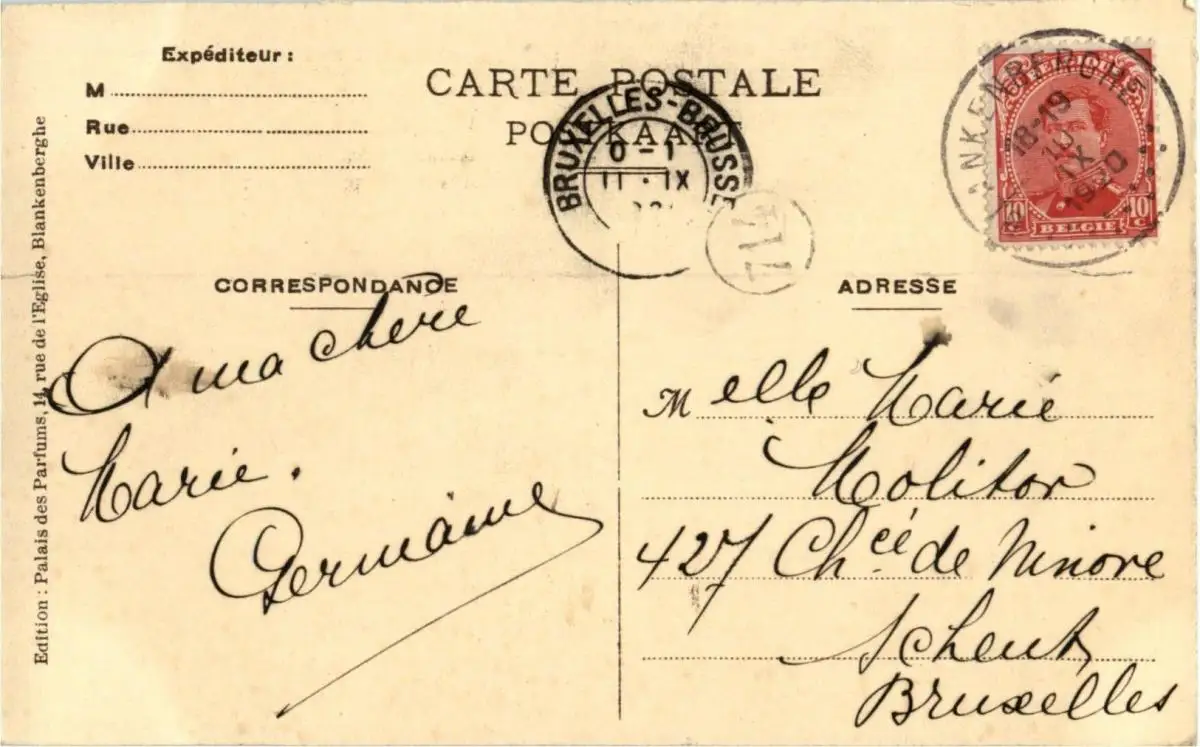 Expéditeur :
M
Rue
Ville
CARTE POSTALE
POSTKAART
BRUXELLES-BRUSSE
0-1
11·IX
ANKENBERGHE
18-19
10
IX
1920
10 10
C
BELGIE
71
Edition : Palais des Parfums, 14, rue de l'Eglise, Blankenberghe
CORRESPONDANCE
A ma chère
Marie.
Germaine
ADRESSE
Melle Marie
Molitor
427 Chcée de Ninove
Scheut
Bruxelles